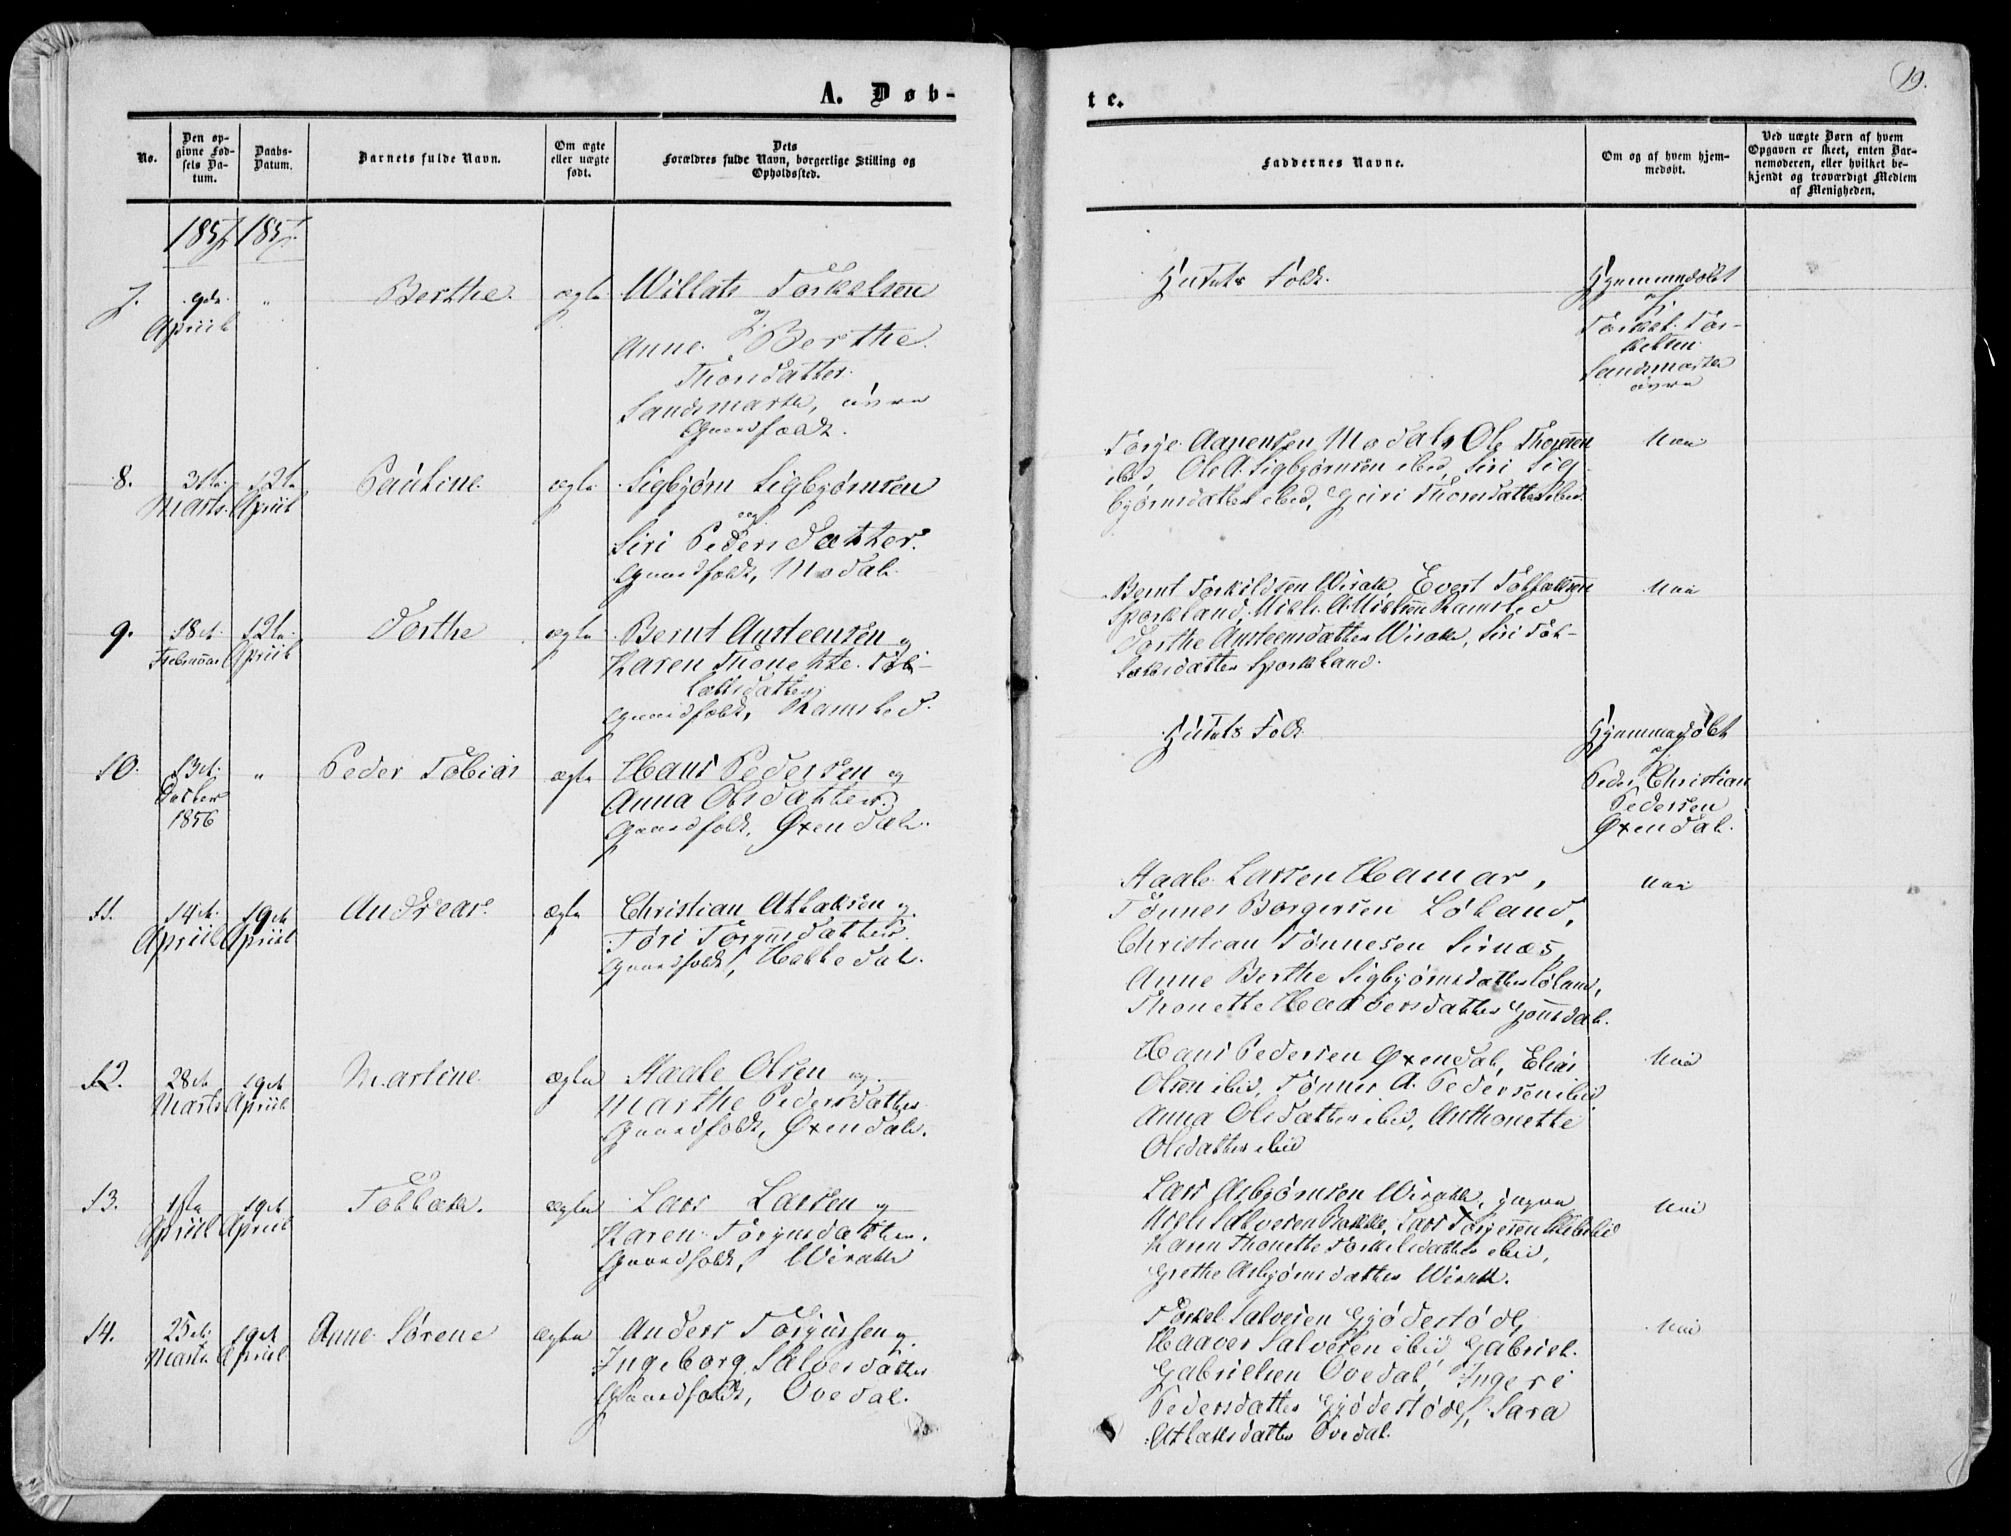 A. Døb-
te.
19.
No.
Den op-
givne Fød-
sels Da-
tum.
Daabs-
Datum.
Barnets fulde Navn.
Om ægte
eller uægte
født.
Dets
Forældres fulde Navn, borgerlige Stilling og
Opholdssted.
Faddernes Navne.
Om og af hvem hjem-
medøbt.
Ved uægte Børn af hvem
Opgaven er skeet, enten Bar-
nemoderen, eller hvilket be-
kjendt og troværdigt Medlem
af Menigheden.
1857 1857
7. 9de April " Berthe. ægte Willats Torkelsen
og
Anne Berthe
Thorsdatter
Sandsmark, øvre
Gaardfolk.
Husets Folk.
Hjemmedøbt
af
Torkel Tor-
kelsen
Sandsmark
øvre
8. 3die Marts 12te April Pauline ægte Sigbjørn Sigbjørnsen
og
Siri Pedersdatter.
Gaardfolk, Modal
Torje Aanensen Modal, Ole Thorsen
ibid, Ole A. Sigbjørnsen ibid, Siri Sig-
bjørnsdatter ibid, Guri Thorsdatter ibid.
Nei
9. 18de Februar 12te April Dorthe ægte Bernt Austeensen og
Karen Thonette Tol-
laksdatter
Gaardfolk, Ramsled.
Bernt Torkildsen Wirak, Evert Tollaksen
Sporkland, Niels A. Nielsen Ramsled
Dorthe Austeensdatter Wirak, Siri Tol-
laksdatter Sporkland.
Nei
10. 13de Octber 1856 " Peder Tobias ægte Hans Pedersen og
Anna Olsdatter
Gaardfolk, Øxendal.
Husets Folk
Hjemmedøbt
af
Peder Christian
Pedersen
Øxendal.
11. 14de April 19de April Andreas ægte Christian Atlaksen og
Tori Torjusdatter
Gaardfolk, Hakkedal.
Staale Larsen Hamar,
Tønnes Borgersen Løland,
Christian Tønnesen Sirnæs,
Anne Berthe Sigbjørnsdatter Løland,
Thonette Haaversdatter Gjonsdal.
Nei
12. 28de Marts 19de April Martine ægte Staale Olsen og
Marthe Pedersdatter
Gaardfolk, Øxendal.
Hans Pedersen Øxendal, Elias
Olsen ibid, Tønnes A. Pedersen ibid
Anna Olsdatter ibid, Anthonette
Olsdatter ibid
Nei
13. 1ste April 19de April Tollak. ægte Lars Larsen og
Karen Torjusdatter.
Gaardfolk, Wirak
Lars Asbjørnsen Wirak, yngre
Niels Salvesen Bakke, Lars Torjersen
Karen Thonette Torkelsdatter ibid,
Grethe Asbjørnsdatter Wirak.
Nei
14. 25de Marts 19de April Anne Sørene ægte Anders Torjussen og
Ingeborg Salvesdatter
Gaardfolk, Ovedal.
Torkel Salvesen Gjødestødl,
Haaver Salvesen ibid, Gabriel
Gabrielsen Ovedal, Ingeri
Pedersdatter Gjødestødl, Sara
Atlaksdatter Ovedal.
Nei